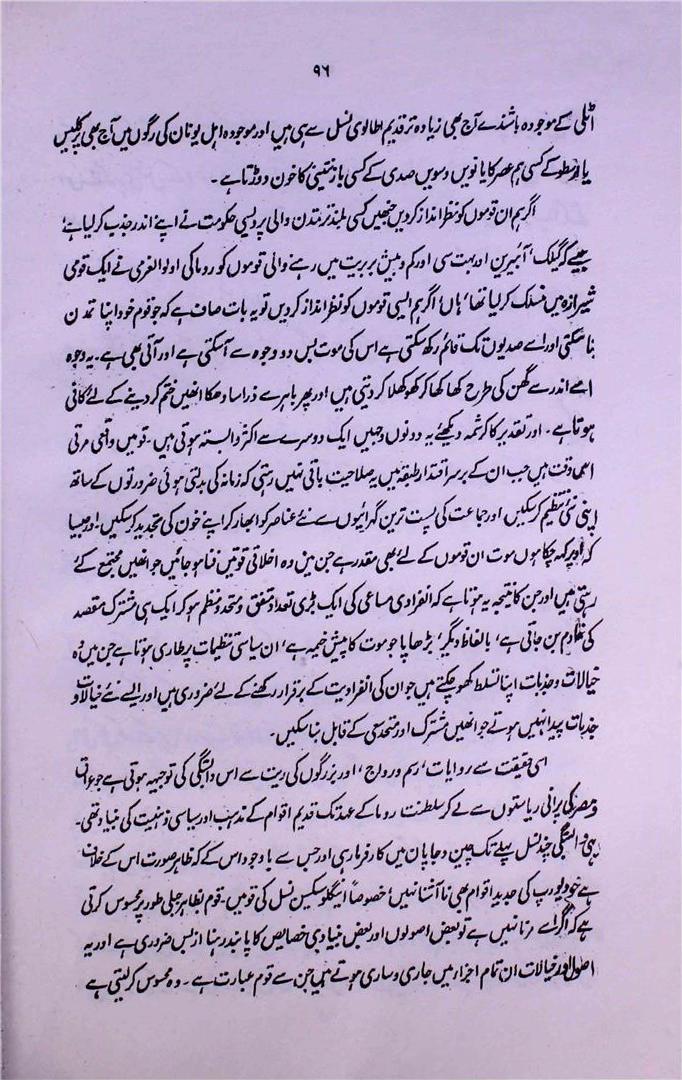 ۹۶
اٹلی کے موجودہ باشندے آج بھی زیادہ تر قدیم اطالوی نسل سے ہی ہیں اور موجودہ اہل یونان کی رگوں میں آج بھی پرکلیس
یا ارسطو کے کسی ہم عصر کا یا نویں دسویں صدی کے کسی بازنتینی کا خون دوڑتا ہے ۔
اگر ہم ان قوموں کو نظر انداز کردیں جنھیں کسی بلند تر تمدن والی پردیسی حکومت نے اپنے اندر جذب کر لیا ہے
جیسے کہ گیلک، آئبیرین اور بہت سی اور کم و بیش بربریت میں رہنے والی قوموں کو روما کی اولوالعزمی نے ایک قومی
شیرازہ میں منسلک کر لیا تھا، ہاں، اگر ہم ایسی قوموں کو نظر انداز کردیں تو یہ بات صاف ہے کہ جو قوم خود اپنا تمدن
بنا سکتی اور اسے صدیوں تک قائم رکھ سکتی ہے اس کی موت بس دو وجوہ سے آسکتی ہے اور آئی بھی ہے ۔ یہ وجوہ
اسے اندر سے گھن کی طرح کھا کھا کر کھوکھلا کر دیتی ہیں اور پھر باہر سے ذرا سا دھکا انھیں ختم کر دینے کے لئے کافی
ہوتا ہے ۔ اور تقدیر کا کرشمہ دیکھئے یہ دونوں وجہیں ایک دوسرے سے اکثر وابستہ ہوتی ہیں ۔ قومیں واقعی مرتی
اسی وقت ہیں جب ان کے برسر اقتدار طبقہ میں یہ صلاحیت باقی نہیں رہتی کہ زمانہ کی بدلتی ہوئی ضرورتوں کے ساتھ
اپنی نئی تنظیم کر سکیں اور جماعت کی پست ترین گہرائیوں سے نئے عناصر کو ابھار کر اپنے خون کی تجدید کر سکیں ۔ اور جیسا
کہ اوپر کہہ چکا ہوں موت ان قوموں کے لئے بھی مقدر ہے جن میں وہ اخلاقی قوتیں فنا ہو جائیں جو انھیں مجتمع کئے
رہتی ہیں اور جن کا نتیجہ یہ ہوتا ہے کہ انفرادی مساعی کی ایک بڑی تعداد متفق و متحد و منظم ہو کر ایک ہی مشترک مقصد
کی خادم بن جاتی ہے، بالفاظ دیگر، بڑھاپا جو موت کا پیش خیمہ ہے، ان سیاسی تنظیمات پر طاری ہوتا ہے جن میں وہ
خیالات و جذبات اپنا تسلط کھو چکتے ہیں جو ان کی انفرادیت کے برقرار رکھنے کے لئے ضروری ہیں اور ایسے نئے خیالات و
جذبات پیدا نہیں ہوتے جو انھیں مشترک اور متحد سعی کے قابل بنا سکیں ۔
اسی حقیقت سے روایات، رسم و رواج، اور بزرگوں کی ریت سے اس وابستگی کی توجیہ ہوتی ہے جو عراق
و مصر کی پرانی ریاستوں سے لے کر سلطنت روما کے عہد تک قدیم اقوام کے مذہب اور سیاسی ذہنیت کی بنیاد تھی ۔
یہی وابستگی چند نسل پہلے تک چین و جاپان میں کارفرما رہی اور جس سے باوجود اس کے کہ ظاہر صورت اس کے خلاف
ہے خود یورپ کی جدید اقوام بھی ناآشنا نہیں، خصوصاً اینگلو سیکسن نسل کی قومیں ۔ قوم بظاہر جبلی طور پر محسوس کرتی
ہے کہ اگر اسے مرنا نہیں ہے تو بعض اصولوں اور بعض بنیادی خصایص کا پابند رہنا از بس ضروری ہے اور یہ
اصول اور خیالات ان تمام اجزا میں جاری و ساری ہوتے ہیں جن سے قوم عبارت ہے ۔ وہ محسوس کر لیتی ہے